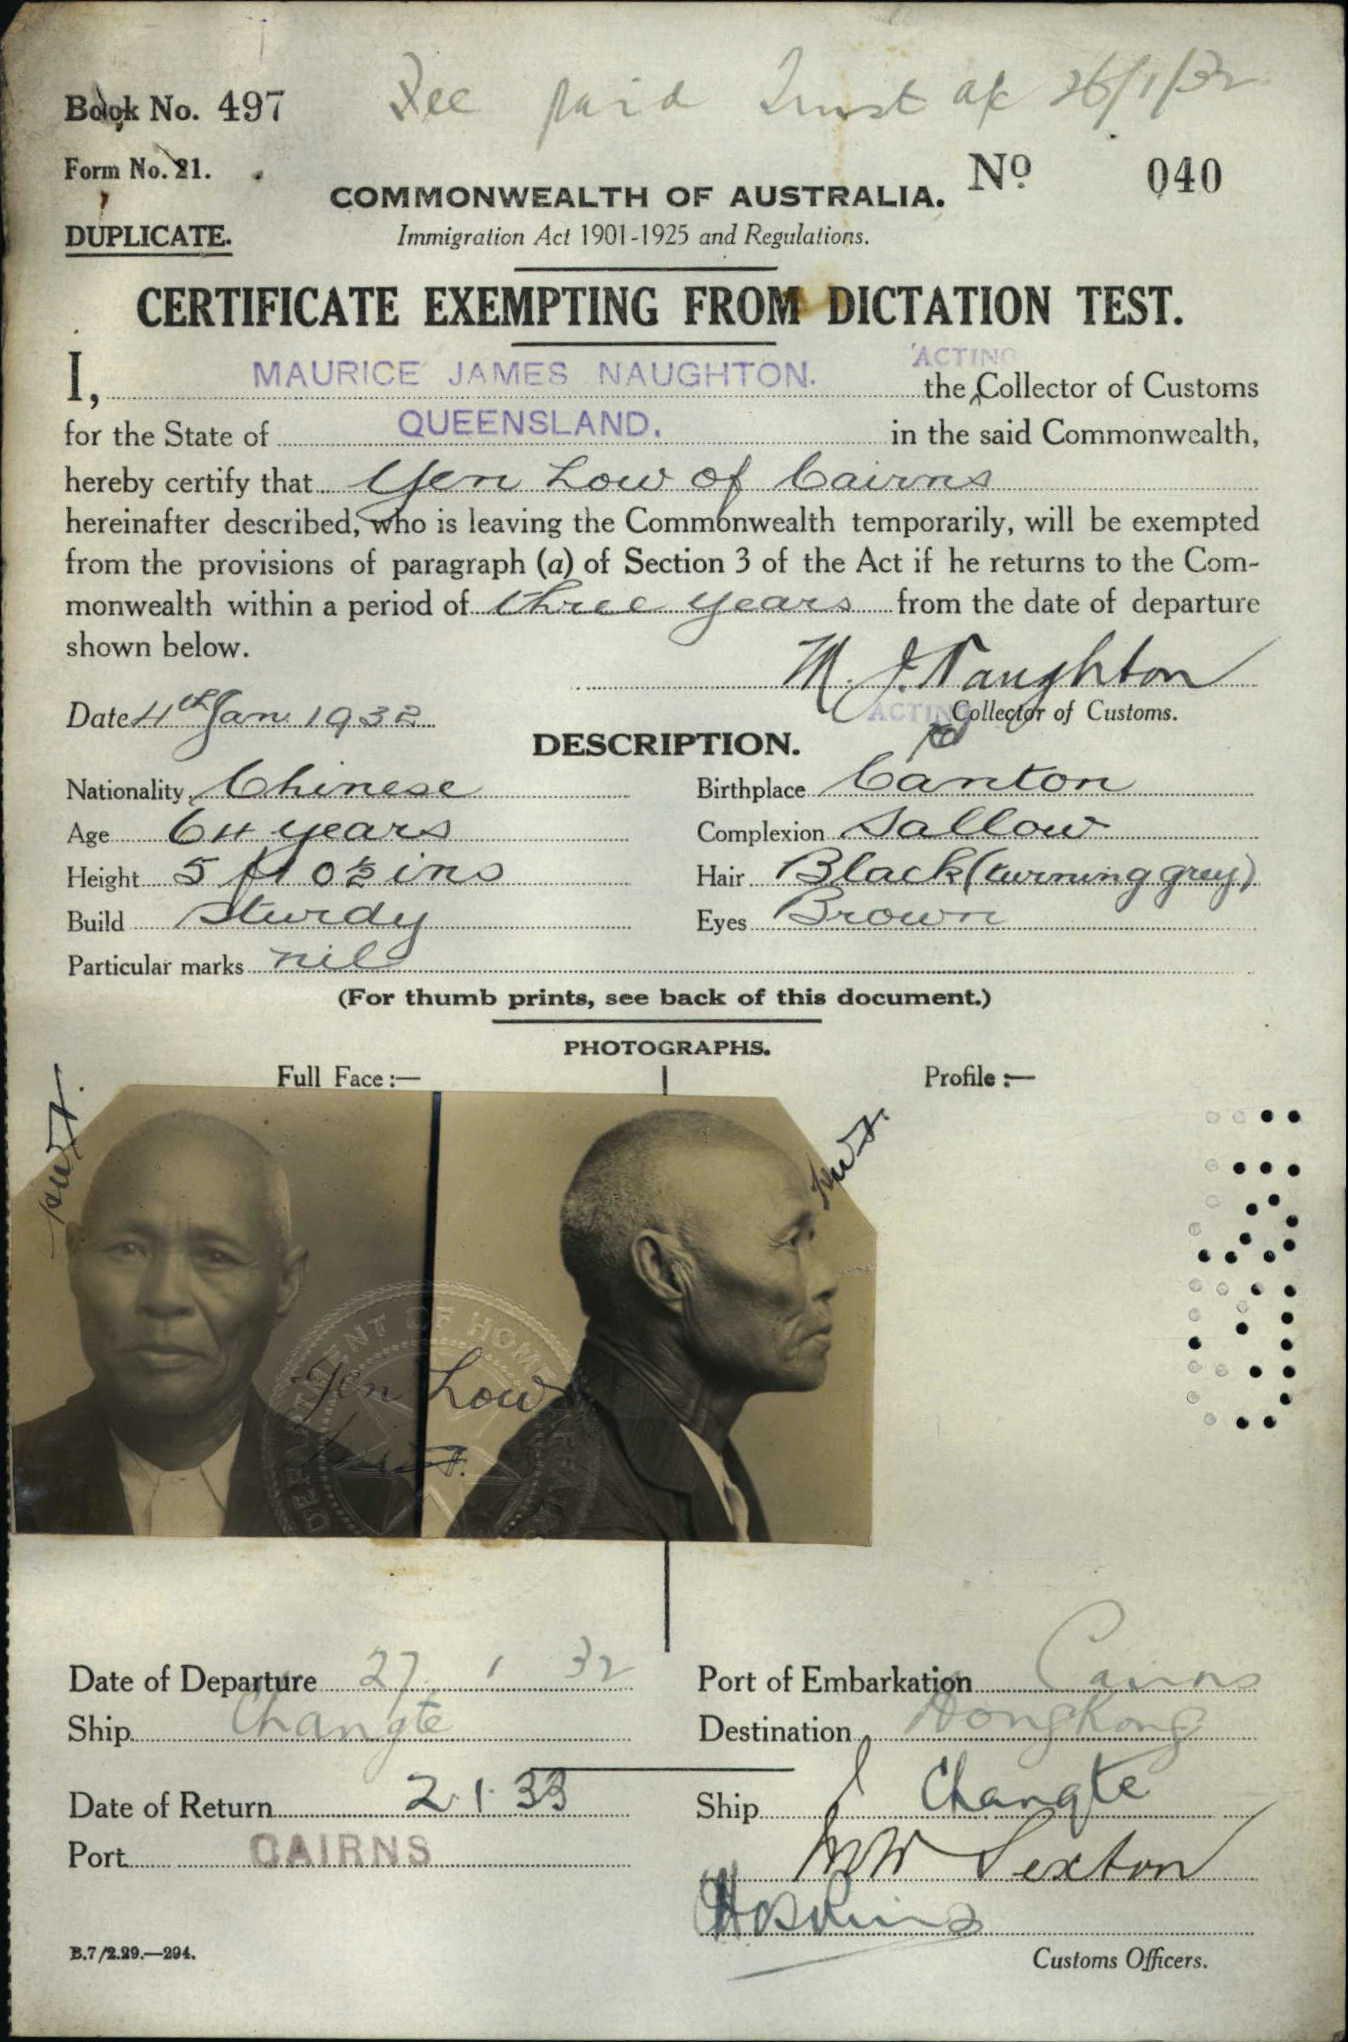 Fee paid Trust a/c 26/1/32
Book No. 497
Form No. 21.
Nº 040
COMMONWEALTH OF AUSTRALIA.
DUPLICATE.
Immigration Act 1901-1925 and Regulations.
CERTIFICATE EXEMPTING FROM DICTATION TEST.
ACTING
I, MAURICE JAMES NAUGHTON. the Collector of Customs
for the State of QUEENSLAND. in the said Commonwealth,
hereby certify that Yen Low of Cairns
hereinafter described, who is leaving the Commonwealth temporarily, will be exempted
from the provisions of paragraph (a) of Section 3 of the Act if he returns to the Com-
monwealth within a period of three years from the date of departure
shown below.
M. J. Naughton
Date 4th Jan 1932
ACTING Collector of Customs.
DESCRIPTION.
Nationality Chinese Birthplace Canton
Age 64 years Complexion Sallow
Height 5 ft 0½ ins Hair Black (turning grey)
Build Sturdy Eyes Brown
Particular marks nil
(For thumb prints, see back of this document.)
PHOTOGRAPHS.
Full Face :— Profile :—
DEPARTMENT OF HOME AFFAIRS
Yen Low
Date of Departure 27 1 32 Port of Embarkation Cairns
Ship Changte Destination Hongkong
Date of Return 2.1.33 Ship Changte
Port CAIRNS
Sexton
Customs Officers.
B.7/2.29.—294.